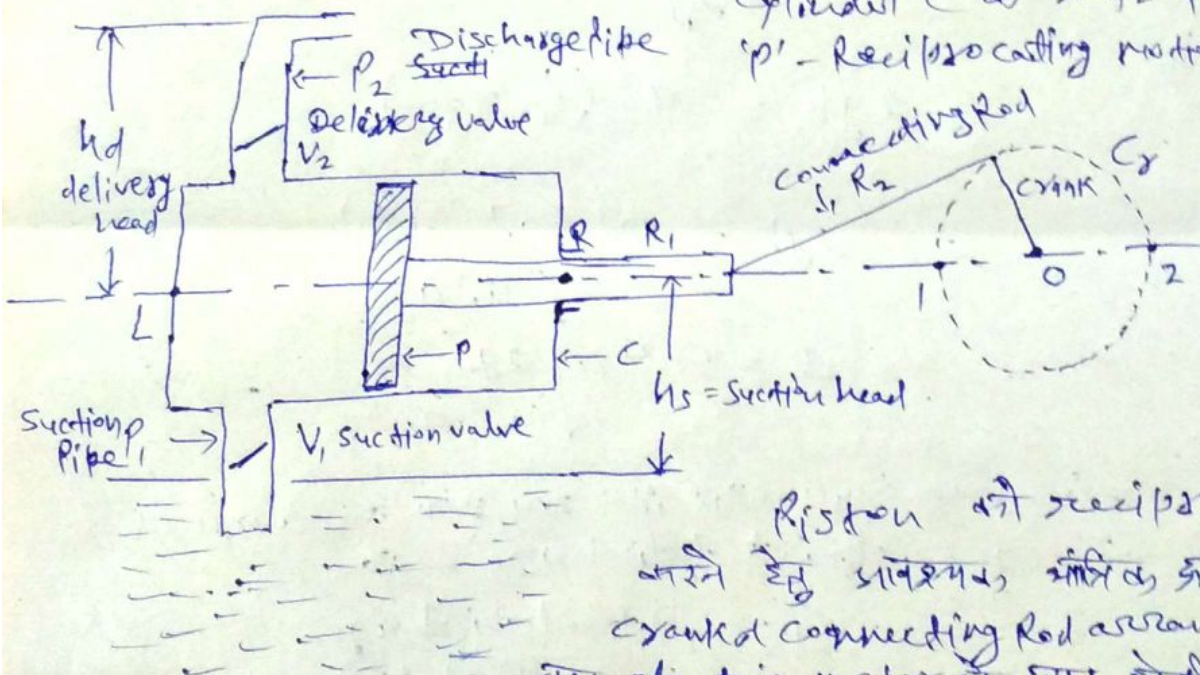 'P' - Reciprocating motio
Discharge Pipe
P2
Delivery valve
V2
hd
delivery
head
Connecting Rod
R2
Cr
Crank
R
R1
L
1
O
2
P
C
hs = Suction head
Suction P1
Pipe
V1 Suction valve
Piston को recipr
करने हेतु आवश्यक यांत्रिक
Crank & Connecting Rod arran